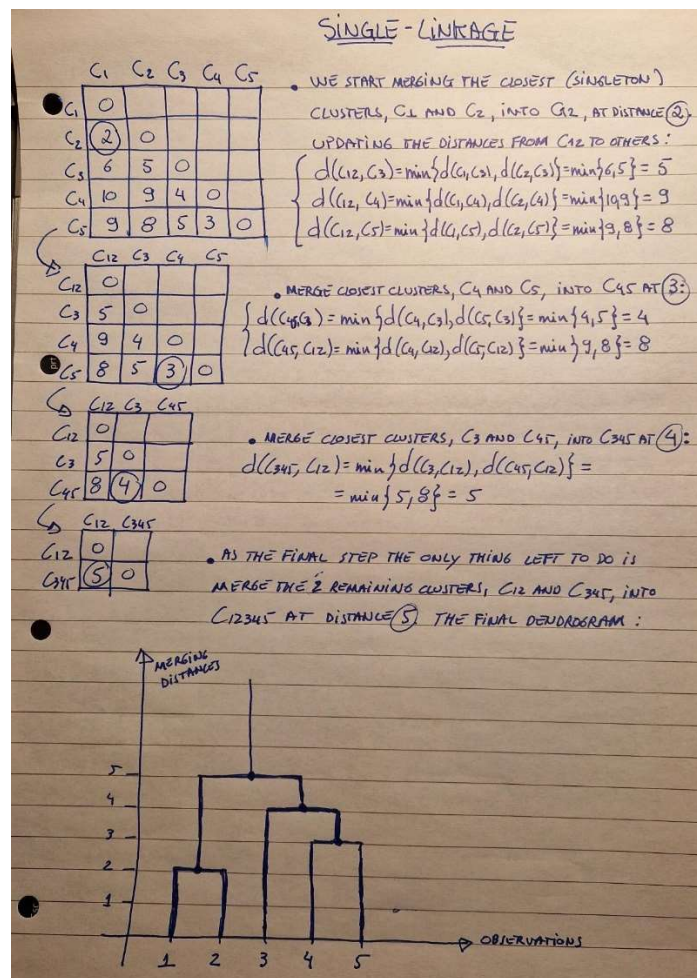 SINGLE-LINKAGE
C1 C2 C3 C4 C5
C1 0
C2 2 0
C3 6 5 0
C4 10 9 4 0
C5 9 8 5 3 0
• WE START MERGING THE CLOSEST (SINGLETON)
CLUSTERS, C1 AND C2, INTO C12, AT DISTANCE 2.
UPDATING THE DISTANCES FROM C12 TO OTHERS:
d(C12,C3)=min{d(C1,C3),d(C2,C3)}=min{6,5}=5
d(C12,C4)=min{d(C1,C4),d(C2,C4)}=min{10,9}=9
d(C12,C5)=min{d(C1,C5),d(C2,C5)}=min{9,8}=8
C12 C3 C4 C5
C12 0
C3 5 0
C4 9 4 0
C5 8 5 3 0
• MERGE CLOSEST CLUSTERS, C4 AND C5, INTO C45 AT 3:
d(C45,C3)=min{d(C4,C3),d(C5,C3)}=min{4,5}=4
d(C45,C12)=min{d(C4,C12),d(C5,C12)}=min{9,8}=8
C12 C3 C45
C12 0
C3 5 0
C45 8 4 0
• MERGE CLOSEST CLUSTERS, C3 AND C45, INTO C345 AT 4:
d(C345,C12)=min{d(C3,C12),d(C45,C12)}=
=min{5,8}=5
C12 C345
C12 0
C345 5 0
• AS THE FINAL STEP THE ONLY THING LEFT TO DO IS
MERGE THE 2 REMAINING CLUSTERS, C12 AND C345, INTO
C12345 AT DISTANCE 5. THE FINAL DENDROGRAM:
MERGING
DISTANCES
5
4
3
2
1
OBSERVATIONS
1 2 3 4 5